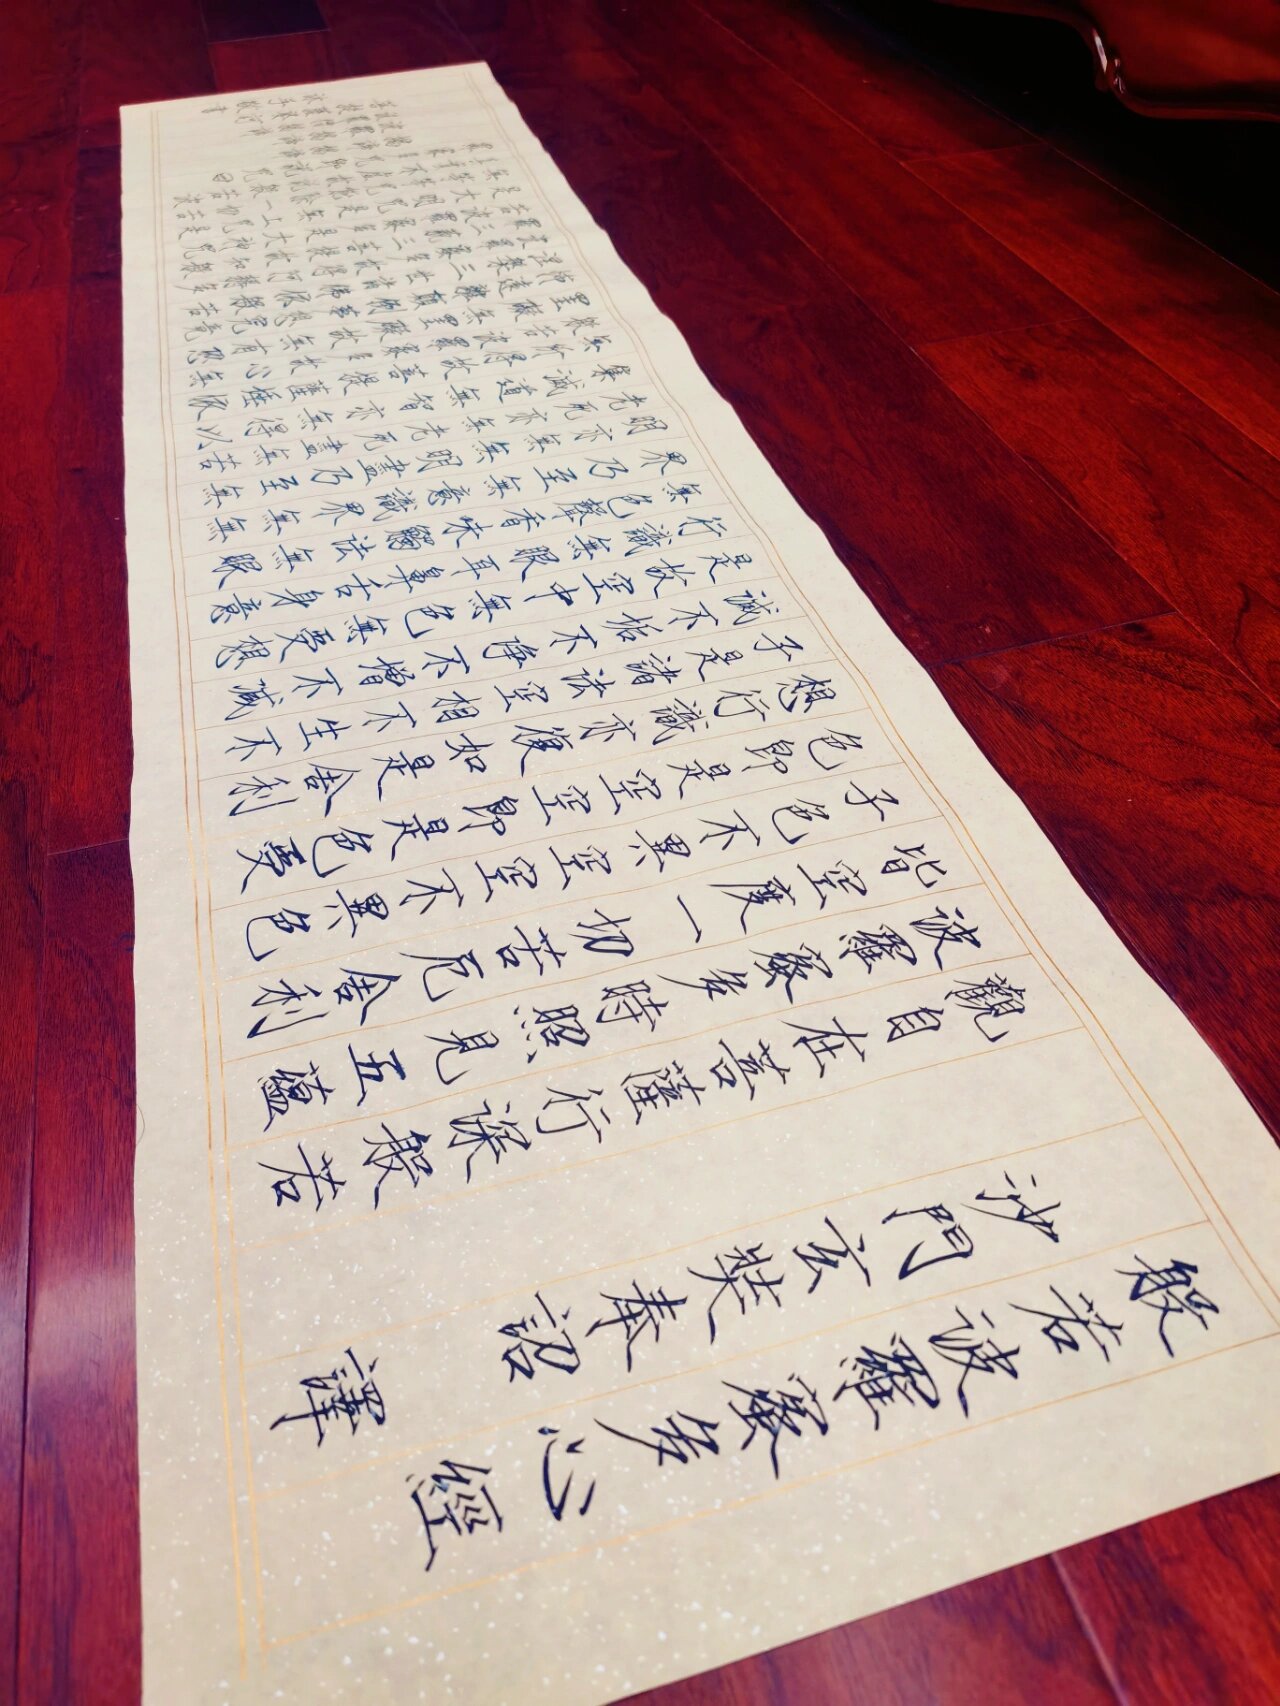 般若波羅蜜多心經
沙門玄奘奉詔譯
觀自在菩薩行深般若
波羅蜜多時照見五蘊
皆空度一切苦厄舍利
子色不異空空不異色
色即是空空即是色受
想行識亦復如是舍利
子是諸法空相不生不
滅不垢不淨不增不減
是故空中無色無受想
行識無眼耳鼻舌身意
無色聲香味觸法無眼
界乃至無意識界無無
明亦無無明盡乃至無
老死亦無老死盡無苦
集滅道無智亦無得以
無所得故菩提薩埵依
般若波羅蜜多故心無
罣礙無罣礙故無有恐
怖遠離顛倒夢想究竟
涅槃三世諸佛依般若